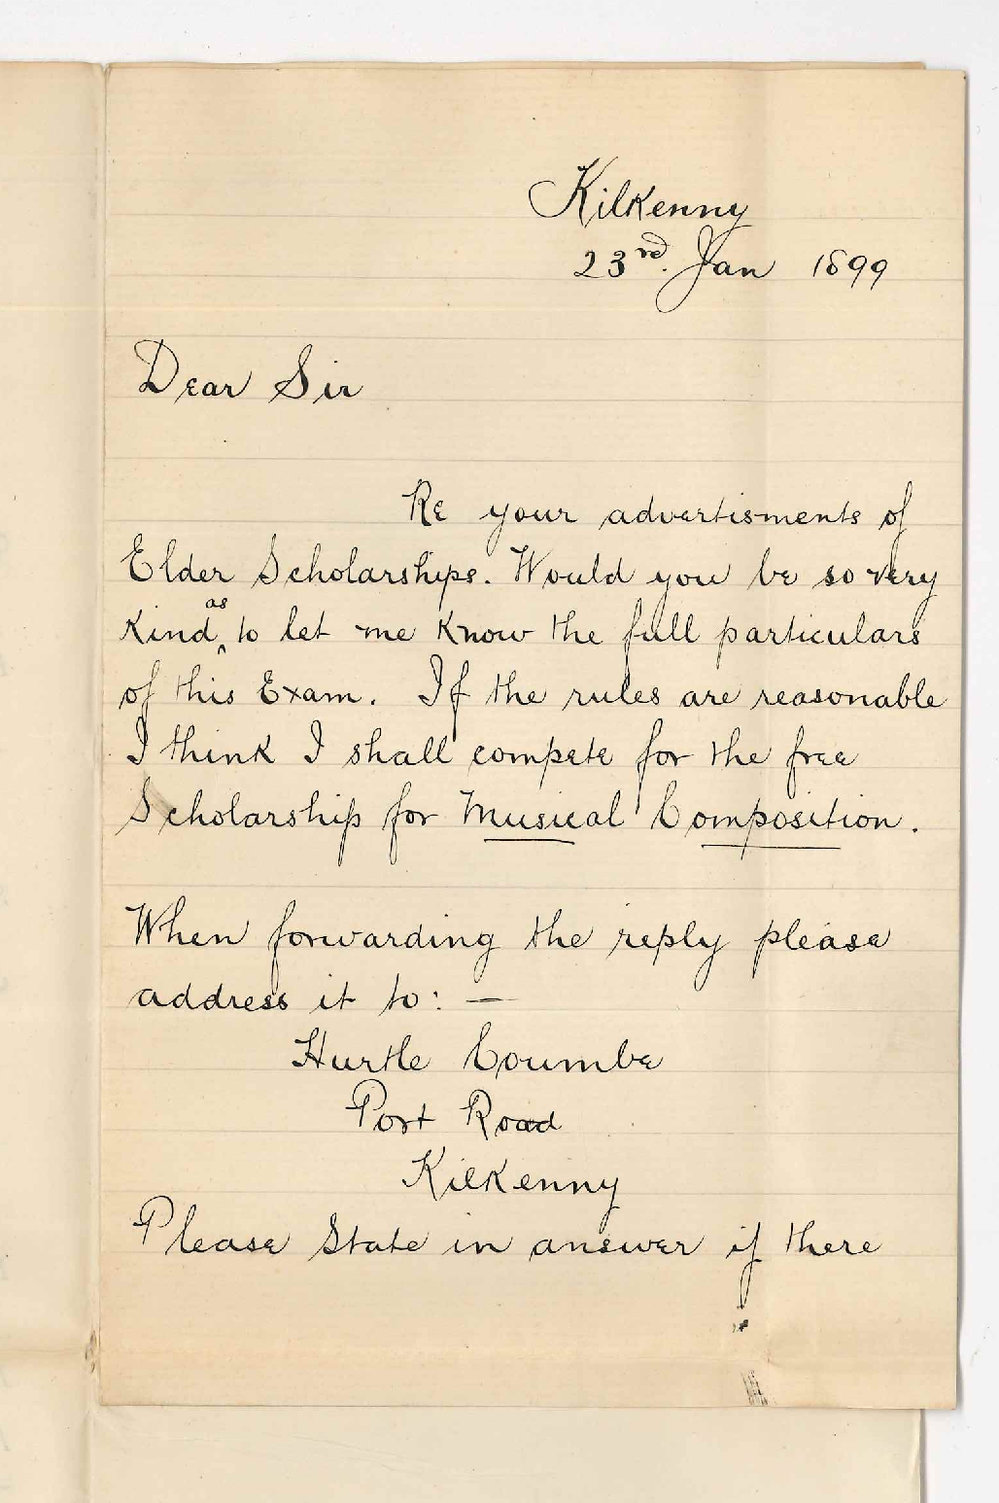 Kilkenny
23rd. Jan 1899
Dear Sir
Re your advertisments of
Elder Scholarships. Would you be so very
kind as to let me know the full particulars
of this Exam. If the rules are reasonable
I think I shall compete for the free
Scholarship for Musical Composition.
When forwarding the reply please
address it to: —
Hurtle Coumbe
Port Road
Kilkenny
Please State in answer if there